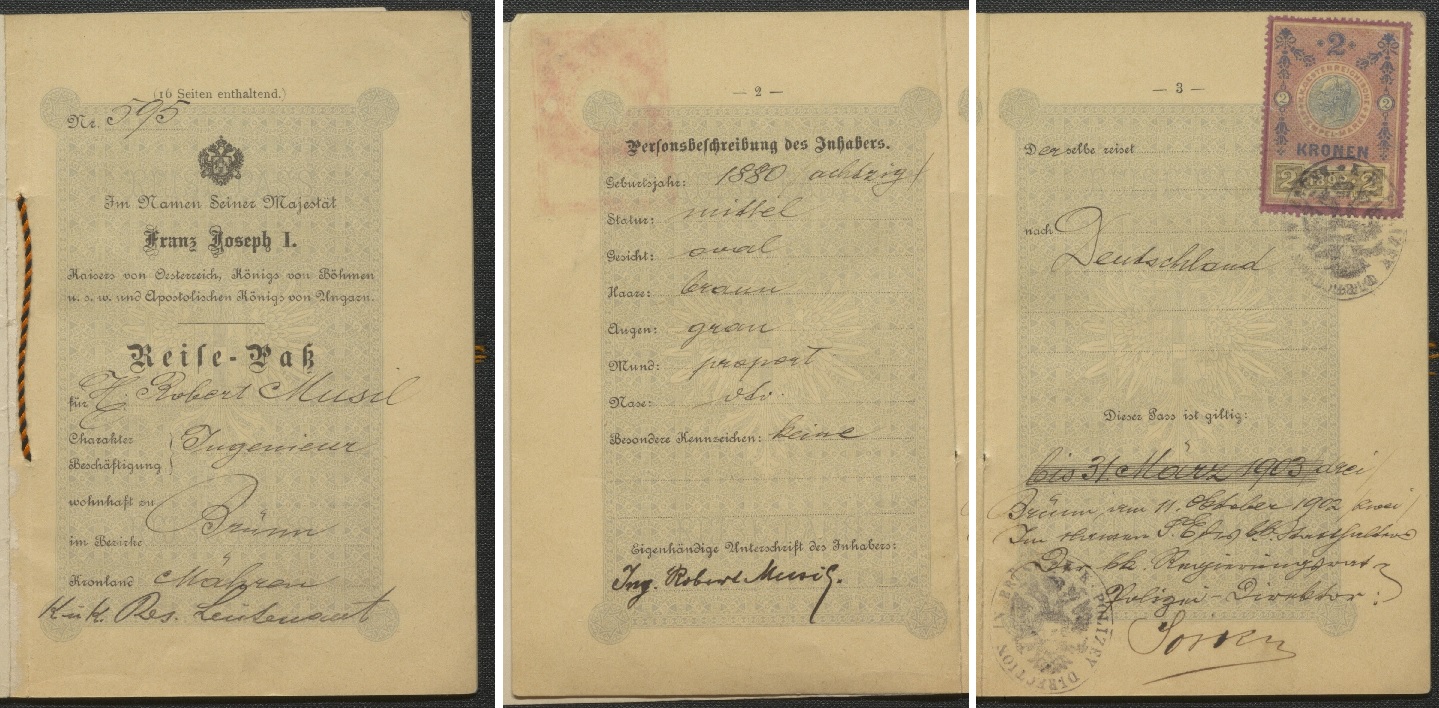 (16 Seiten enthaltend.)
Nr. 595
Im Namen Seiner Majestät
Franz Joseph I.
Kaisers von Oesterreich, Königs von Böhmen
u. s. w. und Apostolischen Königs von Ungarn.
Reise-Paß
für H. Robert Musil
Charakter
Beschäftigung } Ingenieur
wohnhaft zu
Brünn
im Bezirke
Kronland Mähren
K.u.k. Res. Leutenant
— 2 —
Personsbeschreibung des Inhabers.
Geburtsjahr: 1880 achtzig
Statur: mittel
Gesicht: oval
Haare: braun
Augen: grau
Mund: proport
Nase: dto.
Besondere Kennzeichen: keine
Eigenhändige Unterschrift des Inhabers:
Ing. Robert Musil.
— 3 —
2
KRONEN
2 2
Derselbe reiset
nach Deutschland
Dieser Pass ist giltig:
bis 31. März 1903 drei
Brünn, am 11. Oktober 1902 zwei
Im Namen S. Exc. des Statthalters
Der k.k. Regierungsrat
Polizei-Direktor: